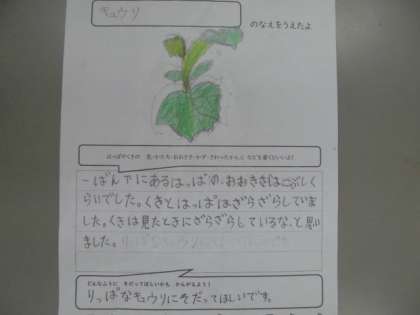 キュウリ
のなえをうえたよ
はっぱやくきの 色・かたち・おおきさ・かず・さわったかんじ などを書くといいよ!
一ばん下にあるはっぱの、おおきさはこぶしく
らいでした。くきとはっぱはざらざらしていま
した。くきは見たときにざらざらしているな、と思い
ました。
どんなふうに そだってほしいかも かんがえよう!
りっぱなキュウリにそだってほしいです。